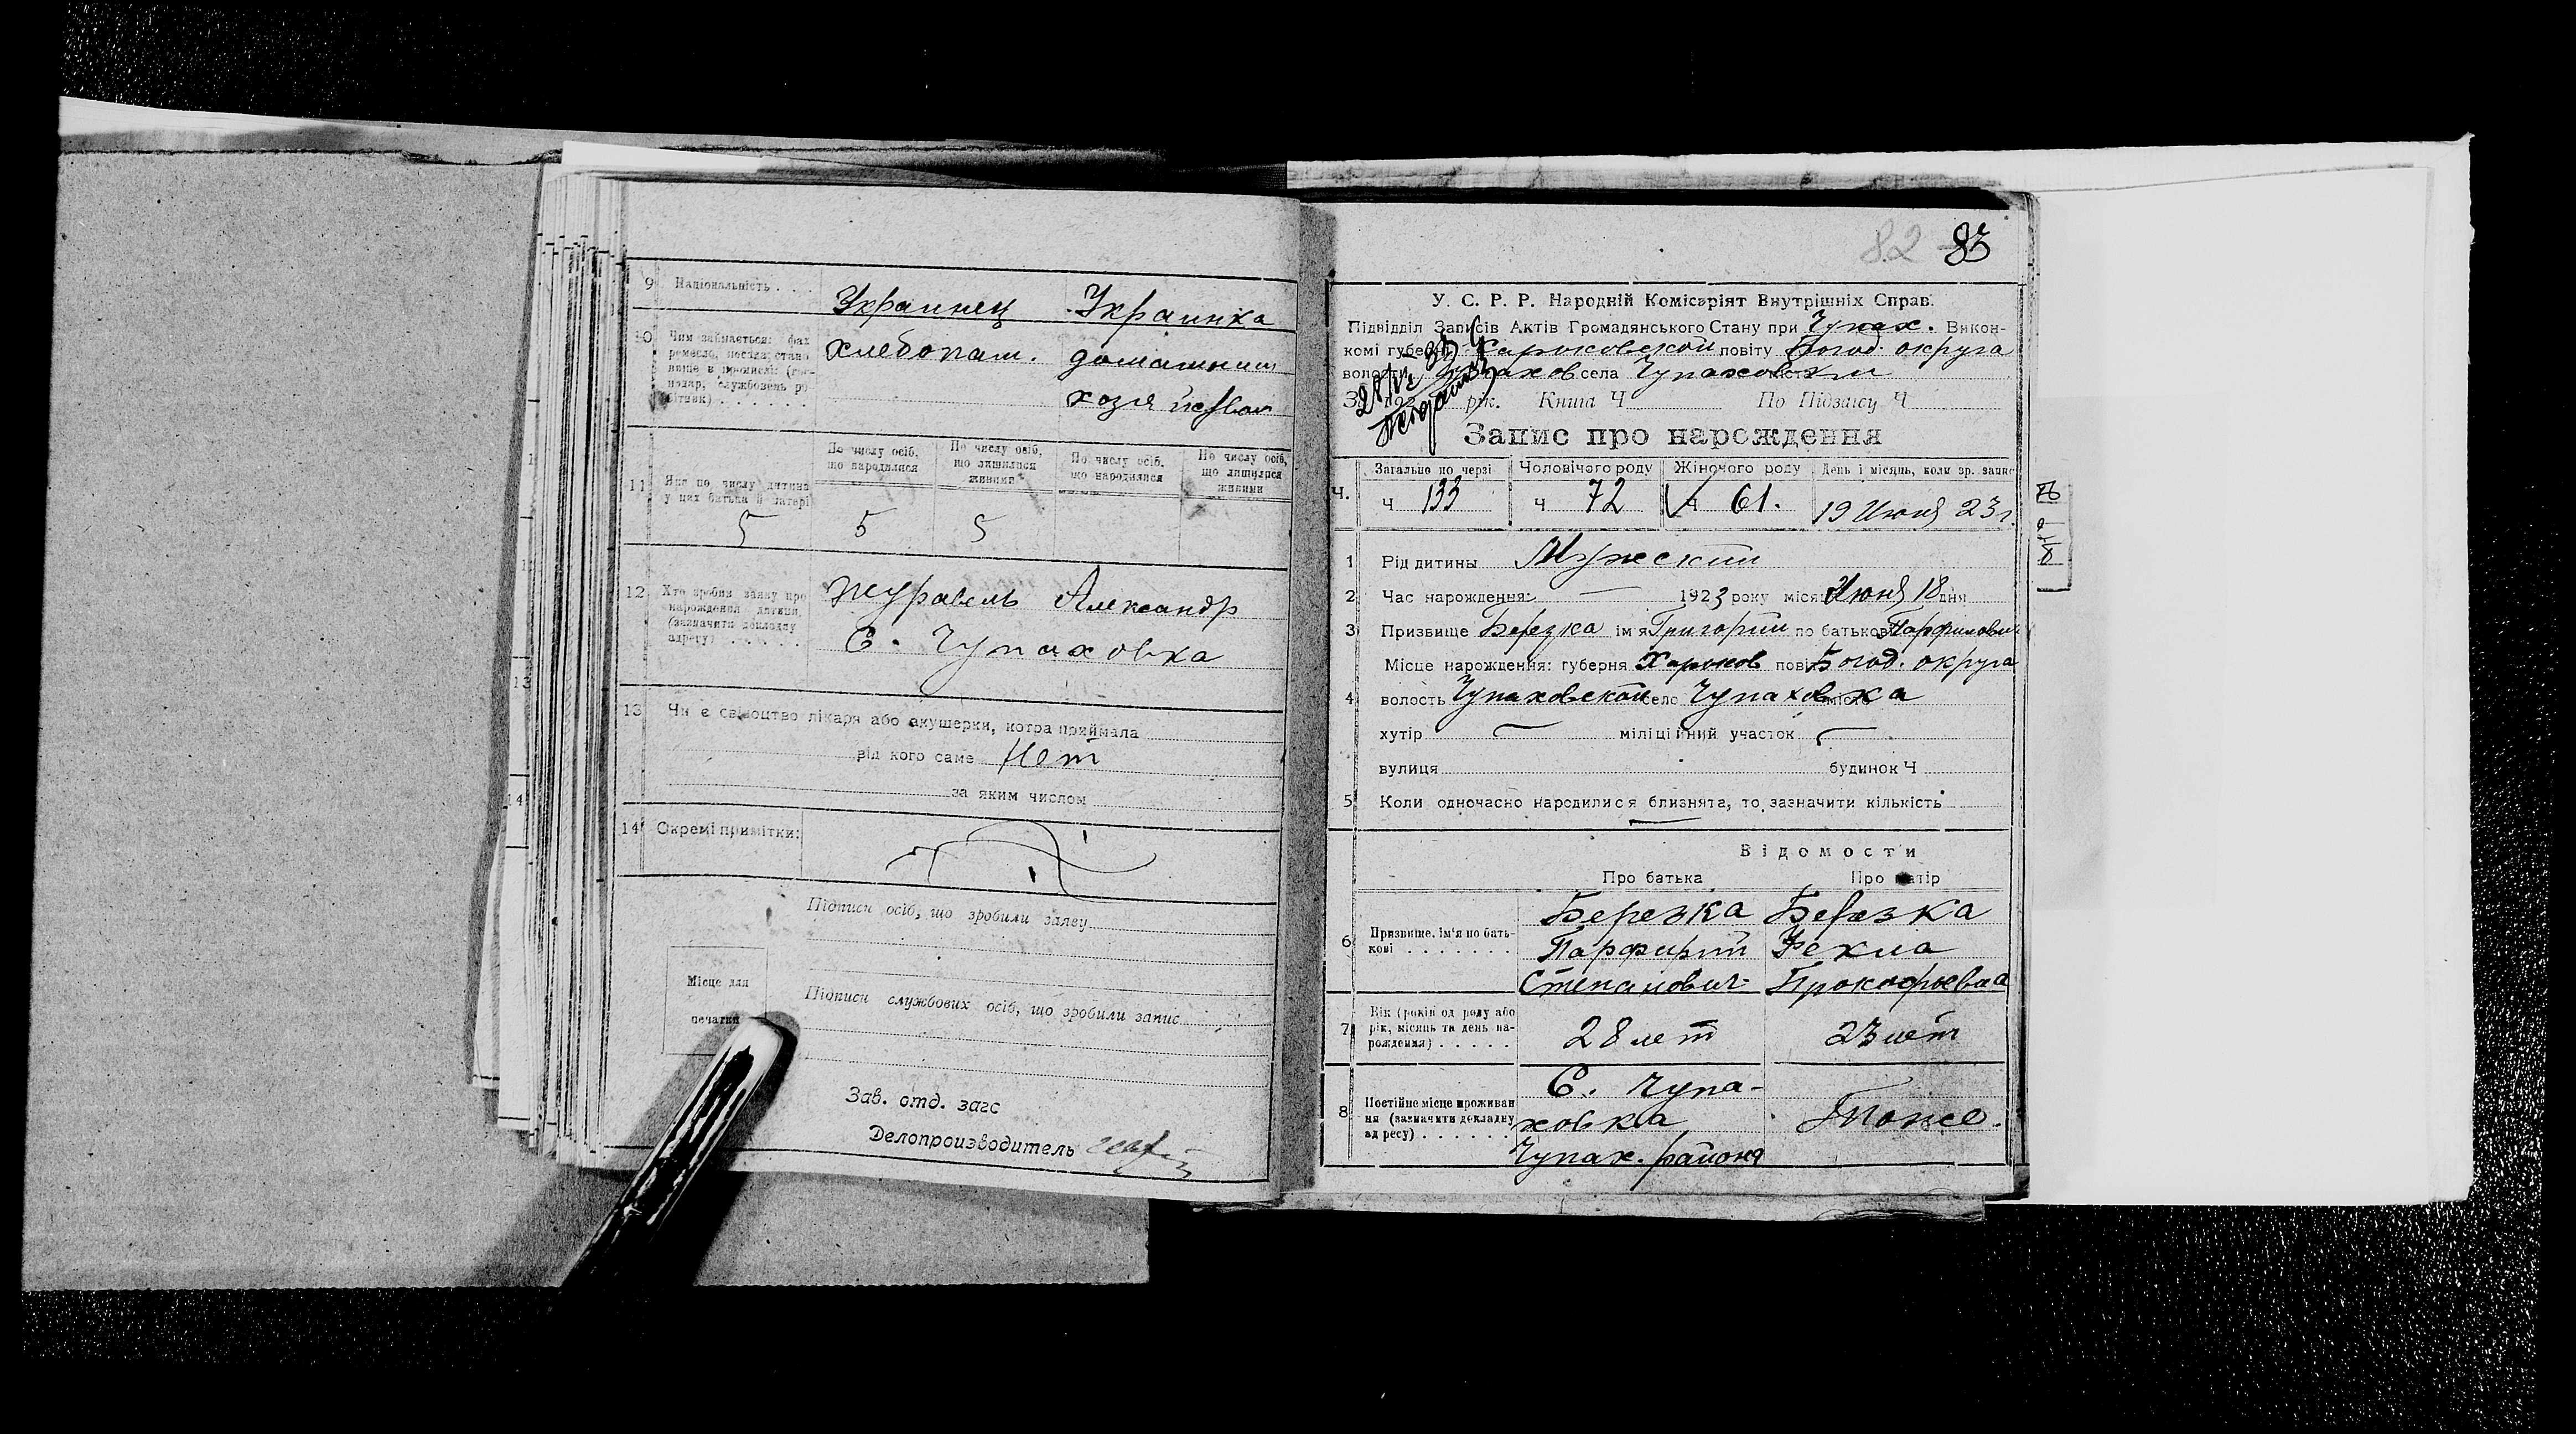 9 Національність . . . Украинец Украинка
10 Чим займається: фах хлебопаш. домашнии
ремесло, посада, стано
вище в промислі: (гос-
подар, службовець ро
бітник) . . . . . . . хозяйством
По числу осіб, що народилися По числу осіб, що лишилися живими По числу осіб, що народилися По числу осіб, що лишилися живими
11 Яка по числу дитина
у цих батька й матері
5 5 5
12 Хто зробив заяву про
нарождення дитини,
(зазначити докладну
адресу) . . . . .
Журавель Александр
С. Чупаховка
13 Чи є свідоцтво лікаря або акушерки, котра приймала
від кого саме Нет
за яким числом
14 Окремі примітки:
Підписи осіб, що зробили заяву
Місце для
печатки
Підписи службових осіб, що зробили запис
Зав. отд. загс
Делопроизводитель
82 83
У. С. Р. Р. Народній Комісаріят Внутрішніх Справ.
Підвідділ Записів Актів Громадянського Стану при Чупах. Викон-
комі губерні Харьковской повіту Богод. округа
волости Чупахов села Чупаховки
За 192 рік. Книга Ч По Підпису Ч
Запис про нарождення
Загально по черзі Чоловічого роду Жіночого роду День і місяць, коли зр. запис
Ч. ч 133 ч 72 ч 61. 19 Июня 23 г.
1 Рід дитины Мужский
2 Час нарождення: — 1923 року місяц Июня 18 дня
3 Призвище Березка ім'я Григорий по батькові Парфилович
Місце нарождення: губерня Харьков пов Богод. округа
4 волость Чупаховской село Чупаховка місто
хутір — міліційний участок —
вулиця будинок Ч
5 Коли одночасно народилися близнята, то зазначити кількість
—
Відомости
Про батька Про матір
6 Призвище, ім'я по бать-
кові . . . . . . .
Березка Березка
Парфирий Фекла
Степанович Прокофьевна
7 Вік (років од роду або
рік, місяць та день на-
рождення) . . . . .
28 лет 23 лет
8 Постійне місце проживан
ня (зазначити докладну
адресу) . . . . . .
С. Чупа-
ховка Тоже.
Чупах. района